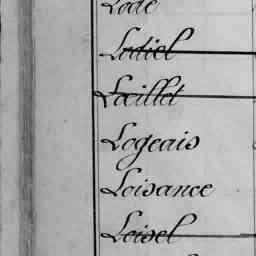 Lodé
Lodiel
Lœillet
Logeais
Loisance
Loisel